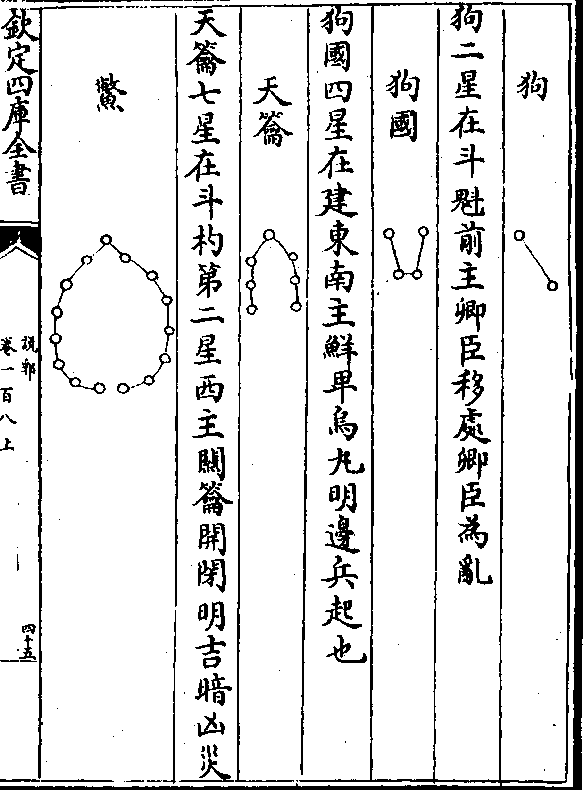 狗
狗二星在斗魁前主卿臣移處卿臣為亂
狗國
狗國四星在建東南主鮮卑烏丸明邊兵起也
天籥
天籥七星在斗杓第二星西主關籥開閉明吉暗凶災
鱉
欽定四庫全書
説郛
卷一百八上
四十五